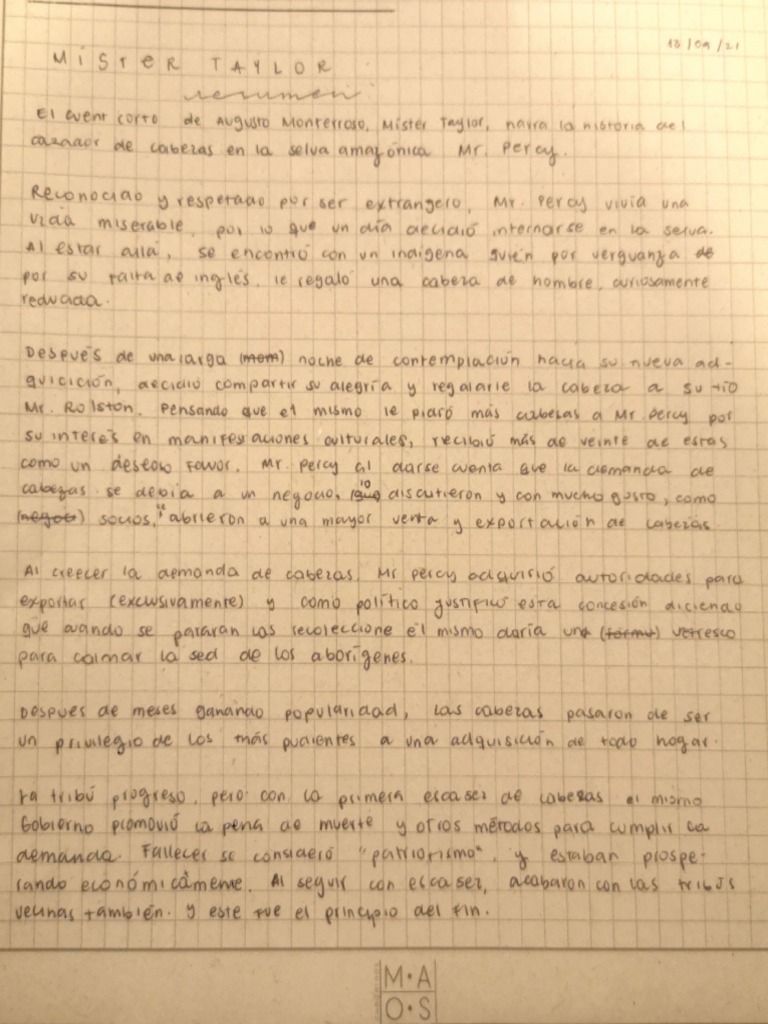 13/09/21
MiSTER TAYLOR
resumen
El cuent corto de Augusto Monterroso, Mister Taylor, narra la historia del
cazador de cabezas en la selva amazónica Mr. Percy.
Reconocido y respetado por ser extrangero, Mr. Percy vivía una
vida miserable, por lo que un día decidió internarse en la selva.
Al estar allá, se encontró con un indígena quién por verguanza de
por su falta de inglés, le regaló una cabeza de hombre, curiosamente
reducida.
Después de una larga (mom) noche de contemplación hacia su nueva ad-
quicición, decidió compartir su alegría y regalarle la cabeza a su tío
Mr. Rolston. Pensando que el mismo le pidió más cabezas a Mr Percy por
su interés en manifestaciones culturales, recibió más de veinte de estas
como un deseoso favor. Mr. Percy al darse cuenta que la demanda de
cabezas se debía a un negocio, lo discutieron y con mucho gusto, como
(negoc) socios, se abrieron a una mayor venta y exportación de cabezas
Al creecer la demanda de cabezas, Mr Percy adquirió autoridades para
exportar (exclusivamente) y como político justificó esta concesión diciendo
que cuando se pararan las recoleccione él mismo daría un refresco
para calmar la sed de los aborígenes.
Despues de meses ganando popularidad, las cabezas pasaron de ser
un privilegio de los más pudientes a una adquisición de todo hogar.
La tribú progreso, pero con la primera escasez de cabezas el mismo
Gobierno promovió la pena de muerte y otros métodos para cumplir la
demanda. Fallecer se consideró "patriotismo", y estaban prospe-
rando económicámente. Al seguir con escasez, acabaron con las tribus
vecinas también. Y este fue el principio del fin.
M·A
O·S